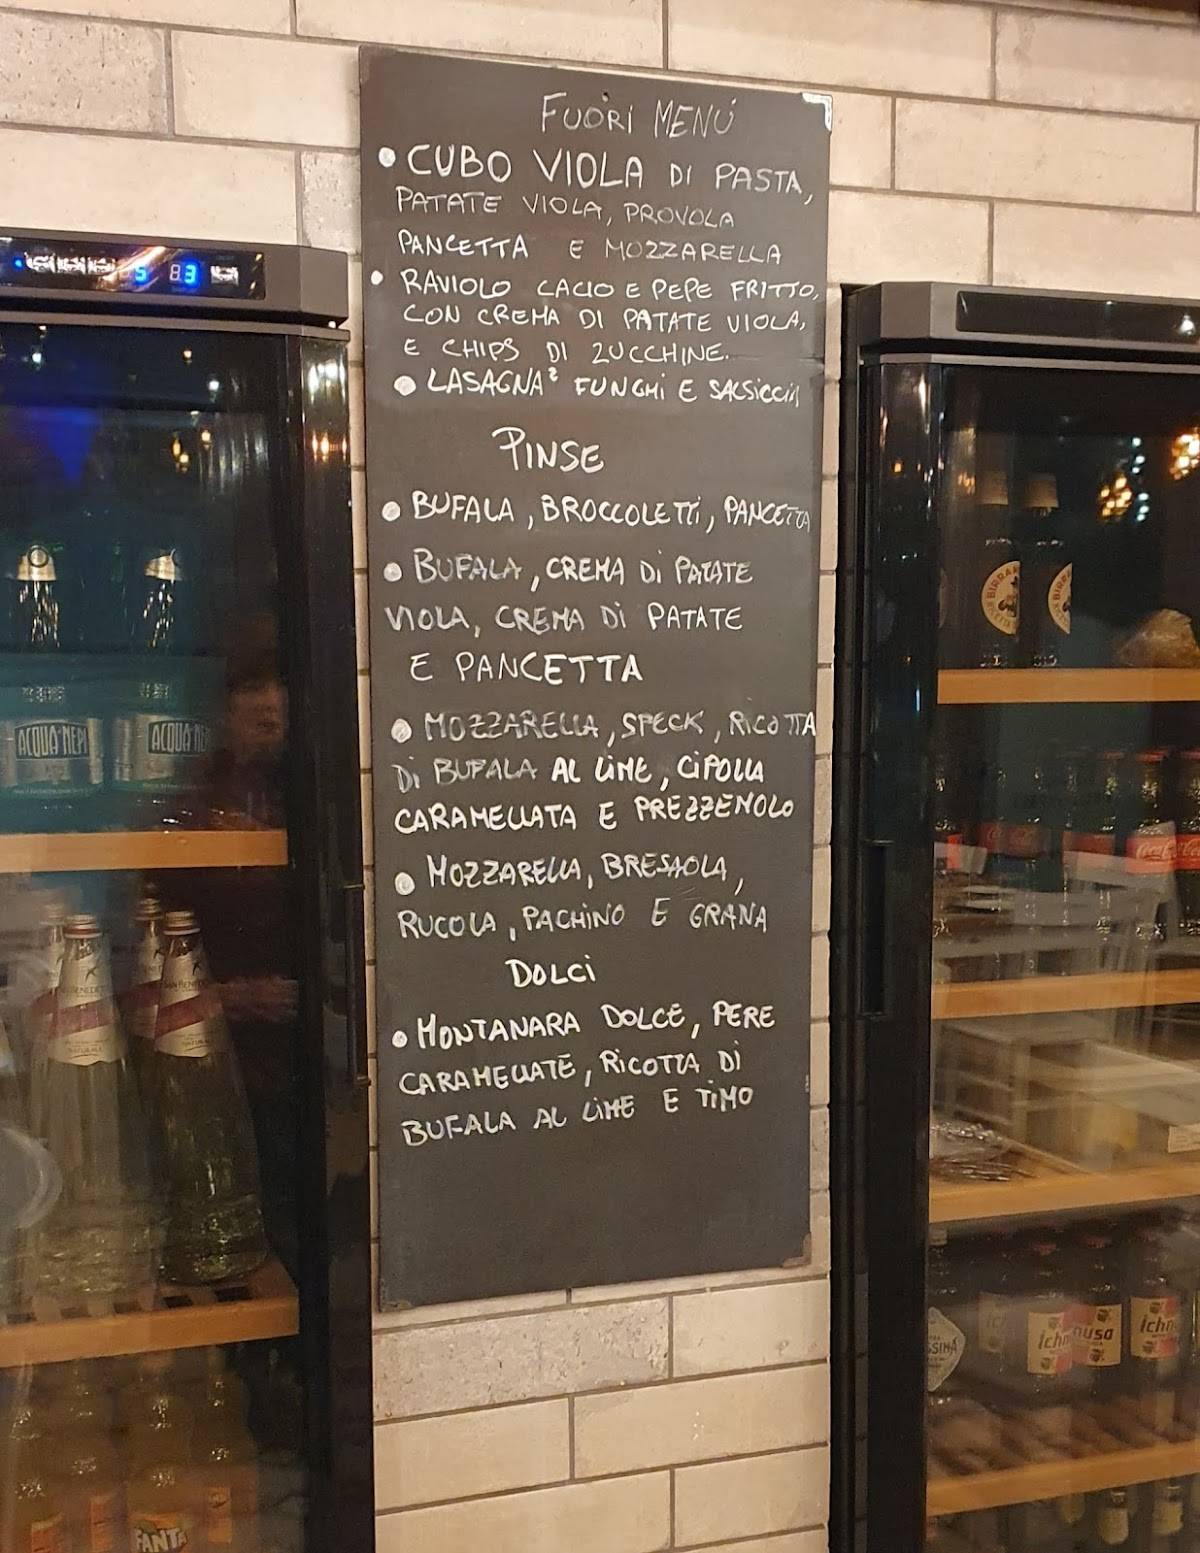 FUORI MENÚ
• CUBO VIOLA DI PASTA,
PATATE VIOLA, PROVOLA
PANCETTA E MOZZARELLA
• RAVIOLO CACIO E PEPE FRITTO,
CON CREMA DI PATATE VIOLA,
E CHIPS DI ZUCCHINE.
• LASAGNA² FUNGHI E SALSICCIA
PINSE
• BUFALA, BROCCOLETTI, PANCETTA
• BUFALA, CREMA DI PATATE
VIOLA, CREMA DI PATATE
E PANCETTA
• MOZZARELLA, SPECK, RICOTTA
DI BUFALA AL LIME, CIPOLLA
CARAMELLATA E PREZZEMOLO
• MOZZARELLA, BRESAOLA,
RUCOLA, PACHINO E GRANA
DOLCI
• MONTANARA DOLCE, PERE
CARAMELLATE, RICOTTA DI
BUFALA AL LIME E TIMO
5 3
ACQUA NEPI
ACQUA NE
BIRRA
BIRR
Coca-Cola
ichnusa
ichn
FANTA